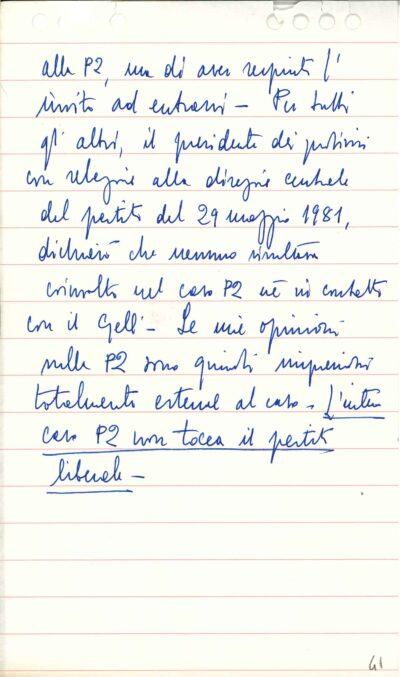 alla P2, ma di aver respinto l'
invito ad entrarvi - Per tutti
gl' altri, il presidente dei probiviri
con relazione alla direzione centrale
del partito del 29 maggio 1981,
dichiarò che nessuno risultava
coinvolto nel caso P2 nè in contatto
con il Gelli - Le mie opinioni
sulla P2 sono quindi impressioni
totalmente esterne al caso - L'intero
caso P2 non tocca il partito
liberale -
41